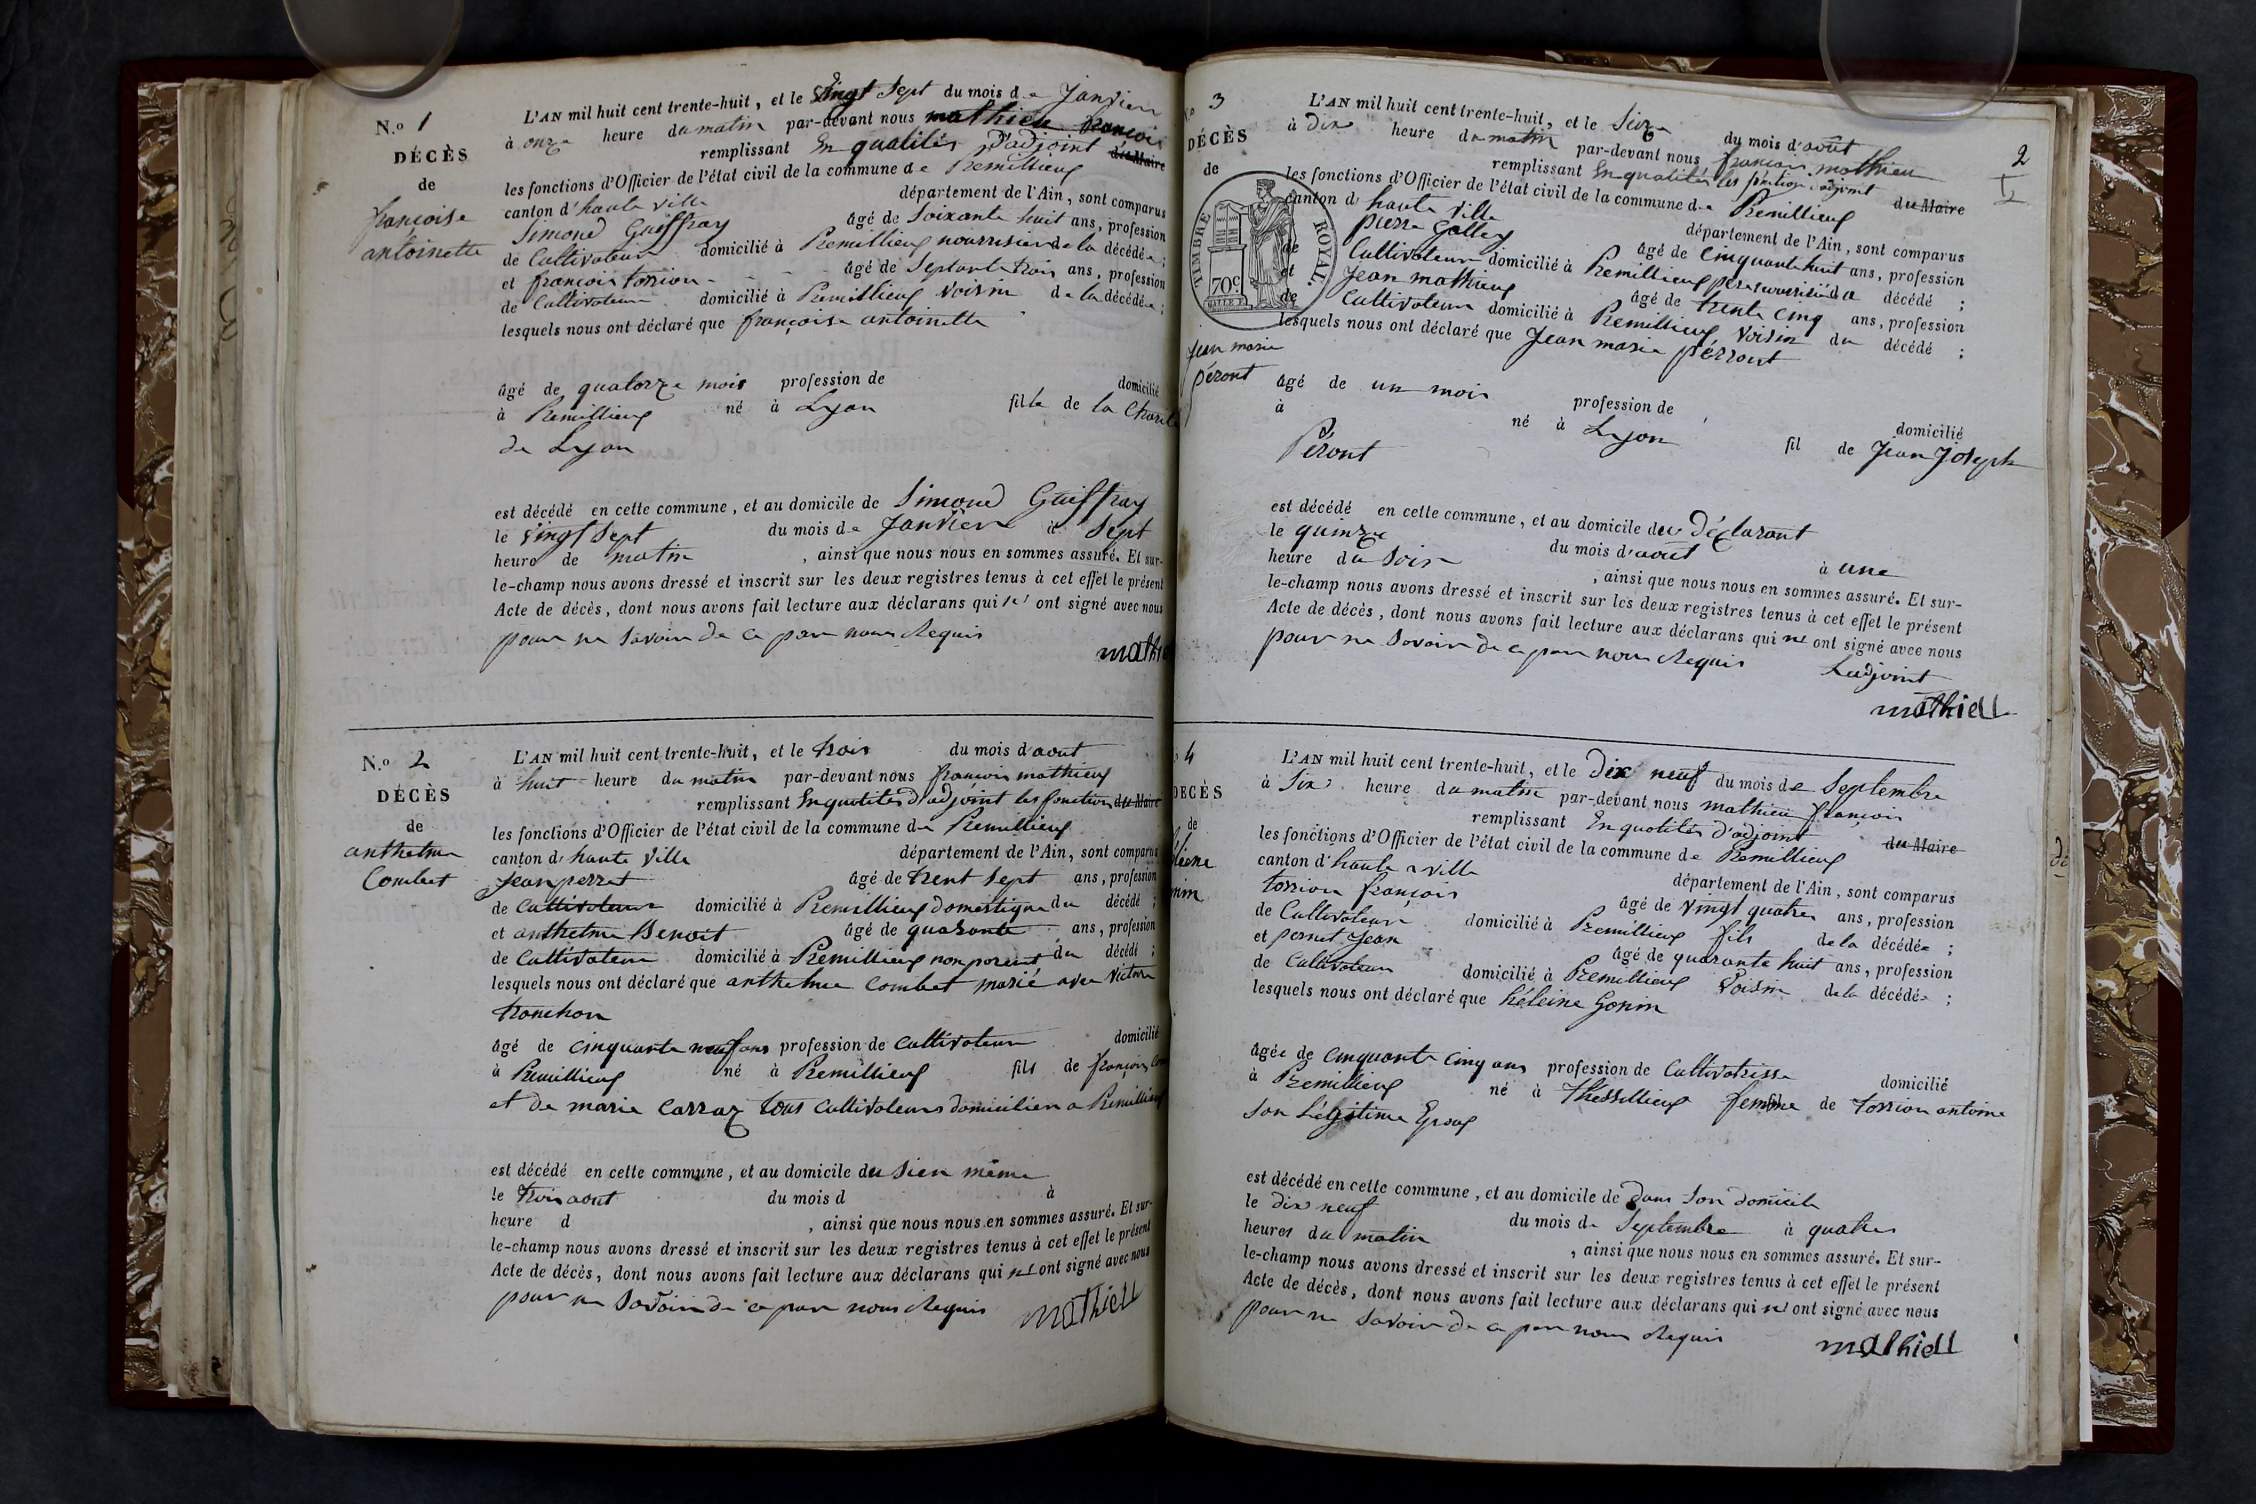 N.o 1
DÉCÈS
de
françoise
antoinette
L'AN mil huit cent trente-huit, et le Vingt Sept du mois de Janvier
à onze heure du matin par-devant nous mathieu françois
remplissant En qualités d'adjoint du Maire
les fonctions d'Officier de l'état civil de la commune de Premillieux
canton d'haute Ville département de l'Ain, sont comparus
Simond Guiffray âgé de Soixante huit ans, profession
de Cultivateur domicilié à Premillieux nourrisier de la décédée;
et françois torrion âgé de Septante trois ans, profession
de Cultivateur domicilié à Premillieux Voisin de la décédée;
lesquels nous ont déclaré que françoise antoinette
âgé de quatorze mois profession de domicilié
à Premillieux né à Lyon fille de la Charité
de Lyon
est décédé en cette commune, et au domicile de Simond Guiffray
le Vingt Sept du mois de Janvier à Sept
heure de matin, ainsi que nous nous en sommes assuré. Et sur-
le-champ nous avons dressé et inscrit sur les deux registres tenus à cet effet le présent
Acte de décès, dont nous avons fait lecture aux déclarans qui n' ont signé avec nous
pour ne Savoir de ce par nous Requis
mathie
N.o 2
DÉCÈS
de
anthelme
Combet
L'AN mil huit cent trente-huit, et le trois du mois d'aout
à huit heure du matin par-devant nous françois mathieu
remplissant En qualités d'adjoint les fonctions du Maire
les fonctions d'Officier de l'état civil de la commune de Premillieux
canton d'haute Ville département de l'Ain, sont comparus
Jean perret âgé de trent Sept ans, profession
de Cultivateur domicilié à Premillieux domestique du décédé;
et anthelme Benoit âgé de quarante ans, profession
de Cultivateur domicilié à Premillieux non parent du décédé;
lesquels nous ont déclaré que anthelme Combet marié avec Victoire
tronchon
âgé de cinquante neuf ans profession de Cultivateur domicilié
à Premillieux né à Premillieux fils de françois Com
et de marie Carraz tous Cultivateurs domicilien a Premillieux
est décédé en cette commune, et au domicile du Sien même
le trois aout du mois d à
heure d , ainsi que nous nous en sommes assuré. Et sur-
le-champ nous avons dressé et inscrit sur les deux registres tenus à cet effet le présent
Acte de décès, dont nous avons fait lecture aux déclarans qui ne ont signé avec nous
pour ne Savoir de ce par nous Requis mathieu
No 3
DÉCÈS
de
TIMBRE ROYAL.
70c
Jean marie
péront
2
L'AN mil huit cent trente-huit, et le Seize du mois d'août
à dix heure du matin par-devant nous françois mathieu
remplissant En qualités les fonction d'adjoint du Maire
les fonctions d'Officier de l'état civil de la commune de Premillieux
canton d'haute Ville département de l'Ain, sont comparus
pierre Golley âgé de Cinquante huit ans, profession
de Cultivateur domicilié à Premillieux pere nourrisié du décédé;
et Jean mathieux âgé de trente cinq ans, profession
de Cultivateur domicilié à Premillieux Voisin du décédé;
lesquels nous ont déclaré que Jean marie péront
âgé de un mois profession de domicilié
à né à Lyon fil de Jean Joseph
Péront
est décédé en cette commune, et au domicile du Déclarant
le quinze du mois d'août à une
heure du Soir, ainsi que nous nous en sommes assuré. Et sur-
le-champ nous avons dressé et inscrit sur les deux registres tenus à cet effet le présent
Acte de décès, dont nous avons fait lecture aux déclarans qui ne ont signé avec nous
pour ne Savoir de ce par nous Requis Ladjoint
mathieu
4
DÉCÈS
de
L'AN mil huit cent trente-huit, et le Dix neuf du mois de Septembre
à Six heure du matin par-devant nous mathieu françois
remplissant En qualités d'adjoint du Maire
les fonctions d'Officier de l'état civil de la commune de Premillieux
canton d'haute ville département de l'Ain, sont comparus
torrion françois âgé de Vingt quatre ans, profession
de Cultivateur domicilié à Premillieux fils de la décédée;
et perret Jean âgé de quarante huit ans, profession
de Cultivateur domicilié à Premillieux Voisin de la décédée;
lesquels nous ont déclaré que héleine Gonin
âgée de Cinquante Cinq ans profession de Cultivatrisse domicilié
à Premillieux né à Thessillieux femme de torrion antoine
Son Légitime Epoux
est décédé en cette commune, et au domicile de Dans Son domicile
le dix neuf du mois de Septembre à quatre
heures du matin, ainsi que nous nous en sommes assuré. Et sur-
le-champ nous avons dressé et inscrit sur les deux registres tenus à cet effet le présent
Acte de décès, dont nous avons fait lecture aux déclarans qui n' ont signé avec nous
pour ne Savoir de ce par nous Requis
mathieu